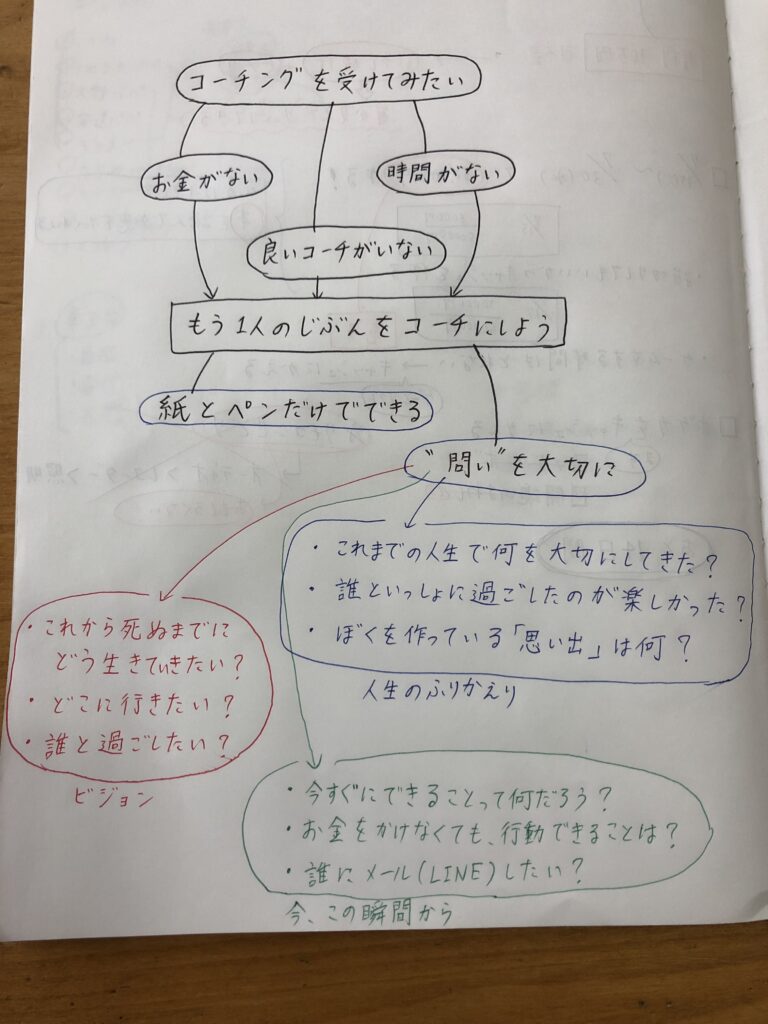 コーチングを受けてみたい
お金がない
時間がない
良いコーチがいない
もう1人のじぶんをコーチにしよう
紙とペンだけでできる
"問い"を大切に
・これまでの人生で何を大切にしてきた?
・誰といっしょに過ごしたのが楽しかった?
・ぼくを作っている「思い出」は何?
人生のふりかえり
・これから死ぬまでに
どう生きていきたい?
・どこに行きたい?
・誰と過ごしたい?
ビジョン
・今すぐにできることって何だろう?
・お金をかけなくても、行動できることは?
・誰にメール(LINE)したい?
今、この瞬間から